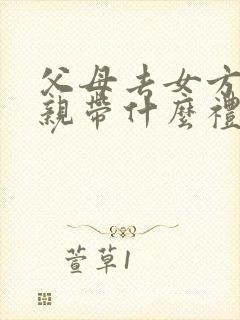 父母去女方
親帶什麼禮
萱草1